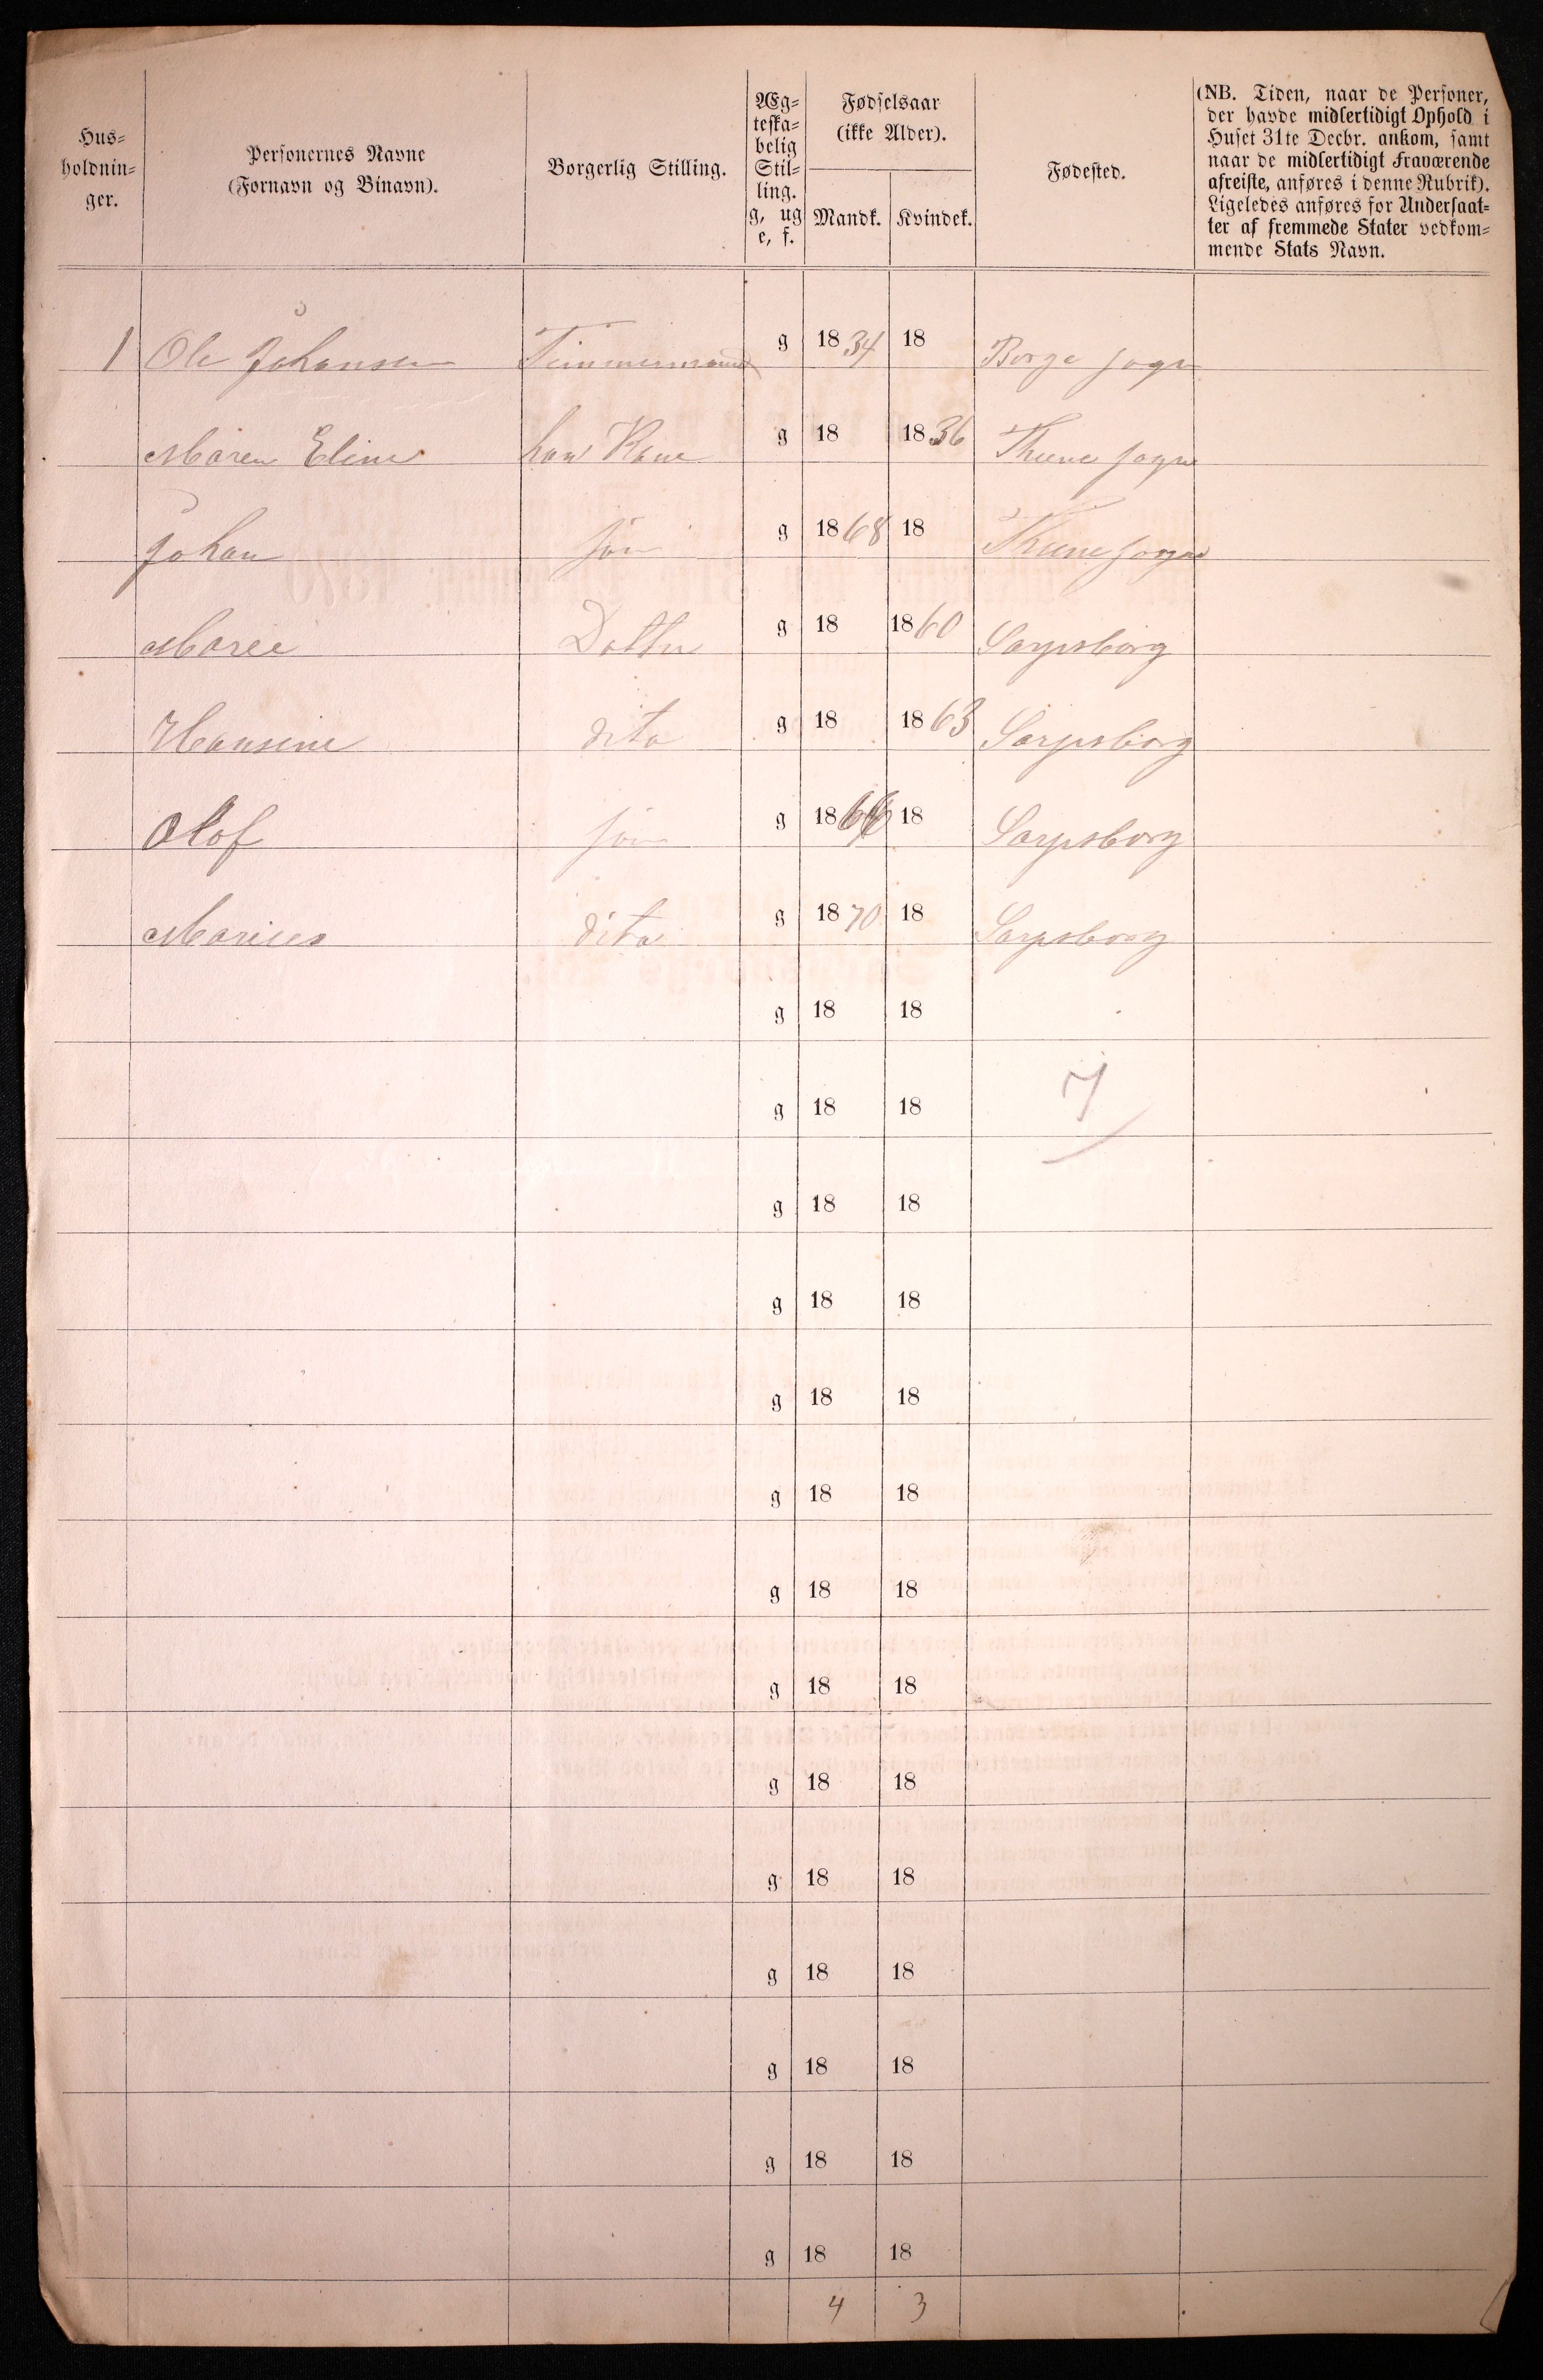 Hus-
holdnin-
ger.
Personernes Navne
(Fornavn og Binavn).
Borgerlig Stilling.
Æg-
teska-
belig
Stil-
ling.
g, ug
e, f.
Fødselsaar
(ikke Alder).
Mandk. Kvindek.
Fødested.
(NB. Tiden, naar de Personer,
der havde midlertidigt Ophold i
Huset 31te Decbr. ankom, samt
naar de midlertidigt Fraværende
afreiste, anføres i denne Rubrik).
Ligeledes anføres for Undersaat-
ter af fremmede Stater vedkom-
mende Stats Navn.
1 Ole Johansen Timmermand g 1834 18 Borge sogn
Maren Eline hans Kone g 18 1836 Thune sogn
Johan søn g 1868 18 Thune sogn
Maree Datter g 18 1860 Sarpsborg
Hansine dito g 18 1863 Sarpsborg
Olof søn g 1866 18 Sarpsborg
Marius dito g 1870 18 Sarpsborg
g 18 18
g 18 18 7
g 18 18
g 18 18
g 18 18
g 18 18
g 18 18
g 18 18
g 18 18
g 18 18
g 18 18
g 18 18
g 18 18
g 18 18
4 3